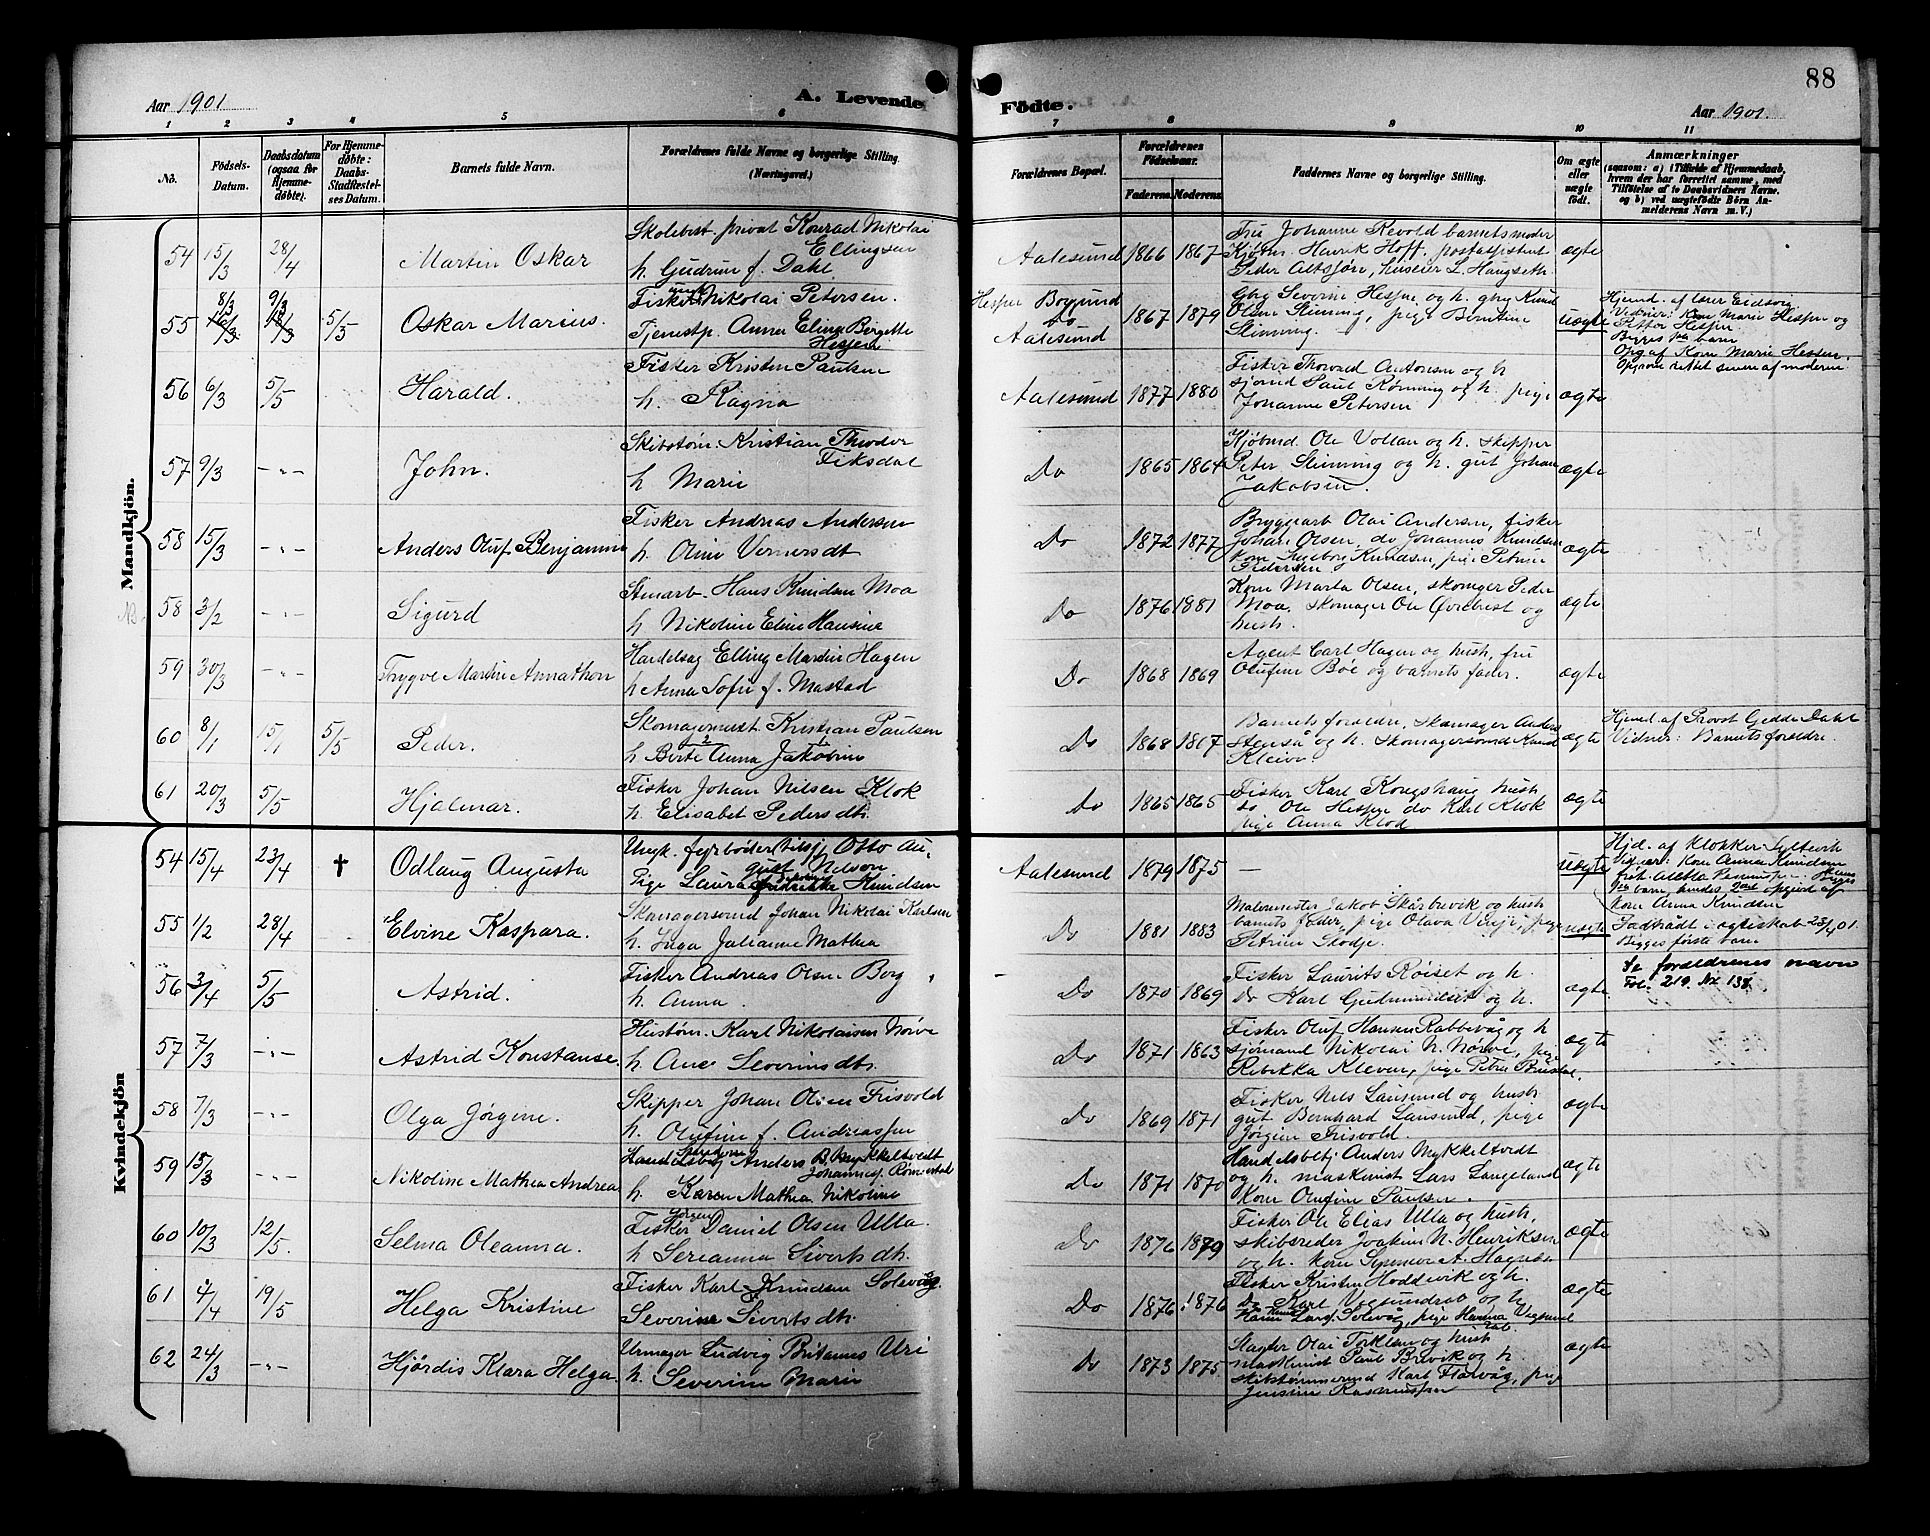 88
Aar 1901
A. Levende
Födte.
Aar 1901.
1 2 3 4 5 6 7 8 9 10 11
No.
Födsels-Datum.
Daabsdatum (ogsaa for Hjemmedøbte).
For Hjemmedøbte: Daabs-Stadfæstelses Datum.
Barnets fulde Navn.
Forældrenes fulde Navne og borgerlige Stilling. (Næringsvei.)
Forældrenes Bopæl.
Forældrenes Födselsaar.
Faderens. Moderens.
Faddernes Navne og borgerlige Stilling.
Om ægte eller uægte født.
Anmærkninger
(saasom: a) i Tilfælde af Hjemmedaab, hvem der har forrettet samme, med Tilføielse af to Daabsvidners Navne, og b) ved uægtefødte Börn Anmelderens Navn m. V.)
Mandkjön.
54 15/3 28/4 Martin Oskar
Skolebest. privat Konrad Nikolai Ellingsen
h. Gudrun f. Dahl
Aalesund 1866 1867
Fru Johanne Revold barnets moder
Kjøbm. Henrik Hoff, postassistent
Peder Altsjøn, huseier L. Haugseth
ægte
55 8/3 9/3 5/5 Oskar Marius.
Fisker ungk Nikolai Petersen.
Tjenestp. Anna Eline Bergitte Hessen
Hessen Borgund
Do
Aalesund 1867 1879
Gbrg Severin Hessen og h. gbrg Knud
Olsen Slinning, pige Berntine
Slinning.
uægte
Hjemd. af lærer Eidsorg
Vidner: Kone Marie Hessen og
Petter Hessen
Begges barn
Opg af Kone Marie Hessen.
56 6/3 5/5 Harald.
Fisker Kristen Paulsen
h. Ragna
Aalesund 1877 1880
Fisker Thorvald Antonsen og h
sjømd Paul Rønning og h. pige
Johanne Petersen
ægte
57 9/3 -"- John.
Skibstøm. Kristian Theodor Fiksdal
h Marie
Do 1865 1864
Kjøbmd. Ole Vollan og h. skipper
Peter Slinning og h. gut Johan
Jakobsen.
ægte
58 15/3 -"- Anders Oluf Benjamin
Fisker Andreas Andersen
h. Oline Vernersdt
Do 1872 1877
Bryggearb Olai Andersen, fisker
Johan Olsen, do Johannes Knudsen
kone Ingeborg Knudsen, pige Petrine
Pedersen
ægte
58 3/2 -"- Sigurd
Stenarb. Hans Knudsen Moa
h Nikoline Eline Hansine
Do 1876 1881
Kone Marta Olsen, skomager Peder
Moa, skomager Ole Ørebest og
hush.
ægte
59 30/3 -"- Trygve Martin Annathon
Handelsag Elling Martin Hagen
h Anna Sofie f. Mastad
Do 1868 1869
Agent Carl Hagen og hush, fru
Olufine Böe og barnets fader.
ægte
60 8/1 15/1 5/5 Peder.
Skomagermest Kristian Paulsen
h Berte Anna Jakobine
Do 1868 1867
Barnets foreldre, Skomager Anders
Stenså og h. Skomagersvend Knud
Kleive
ægte
Hjemd af Provst Gedde Dahl
Vidner: Barnets foreldre.
61 20/3 5/5 Hjalmar.
Fisker Johan Nilsen Klok
h. Elisabet Pedersdtr.
Do 1865 1865
Fisker Karl Kongshaug hush
do Ole Hessen do Karl Klok
pige Anna Klok
ægte
Kvindekjön
54 15/4 23/4 † Odlaug Augusta
Ungk. fyrbøder Otto August Nelson
Pige Laura Fredrikke Knudsen
Aalesund 1879 1875
—
uægte
Hjd. af klokker Syltevik
Vidner: Kone Anna Knudsen
barn, hendes 2det opgivet af
Kone Anna Knudsen
55 1/2 28/4 Elvine Kaspara.
Skomagersvend Johan Nikolai Karlsen
h. Inga Julianne Mathea
Do 1881 1883
Malermester Jakob Skårbrevik og hush
barnets fader, pige Olava Vinje, pige
Petrine Stodje.
uægte
Indtrådt i ægteskab 23/4 01.
Begges første barn
56 3/4 5/5 Astrid.
Fisker Andreas Olsen Borg
h. Anna
Do 1870 1869
Fisker Laurits Röiset og h.
Do Karl Gudmundset og h.
ægte
Se foreldrenes navn
Fol. 219. No 138.
57 7/3 -"- Astrid Konstanse
Hustøm. Karl Nikolaisen Nørve
h. Ane Severinsdtr.
Do 1871 1863
Fisker Oluf Hansen Rabbevåg og h
sjømand Nikolai N. Nørve, pige
Rebekka Kleven, pige Petra
ægte
58 7/3 -"- Olga Jørgine.
Skipper Johan Olsen Frisvold
h. Olufine f. Andreassen
Do 1869 1871
Fisker Nels Lausund og hush.
gut Bernhard Lausund, pige
Jörgine Frisvold.
ægte
59 15/3 -"- Nikoline Mathea Andrea
Handelsbetj Anders B Mykkeltvedt
h. Karen Mathea Nikoline
Do 1871 1870
Handelsbetj Anders Mykkeltvedt
og h. maskinist Lars Langeland
Kone Olufine Paulsen.
ægte
60 10/3 12/5. Selma Oleanna.
Fisker Jørgen Daniel Olsen Ulla
h Serianna Sivertsdtr.
Do 1876 1879
Fisker Ole Elias Ulla og hush,
skibsreder Joakim N. Henriksen
og h. kone
ægte
61 4/4 19/5 Helga Kristine
Fisker Karl Knudsen Solevåg.
Severine Sivertsdtr.
Do 1876 1876
Fisker Kristen Hoddevik og h.
Do Karl Vegsundset og h
Solevåg, pige Hanna Vegsund
ægte
62 24/3 -"- Hjördis Klara Helga
Urmager Ludvig Britannes Uri
h. Severine Marie
Do 1873 1875
Slagter Olai Torklsen og hush
maskinist Paul Brevik og h
skibstømmermd Karl Flatvåg, pige
Jensine Rasmussen
ægte